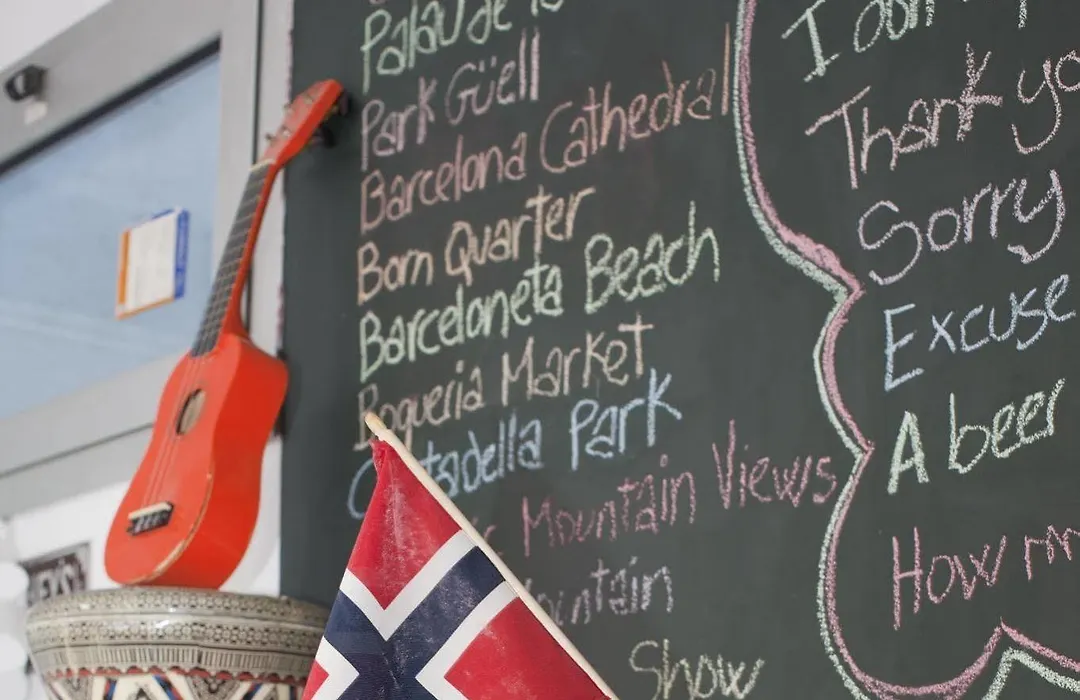 Palau de
Park Güell
Barcelona Cathedral
Born Quarter
Barceloneta Beach
Boqueria Market
Park
Mountain Views
Show
I don
Thank yo
Sorry
Excuse
A beer
How m